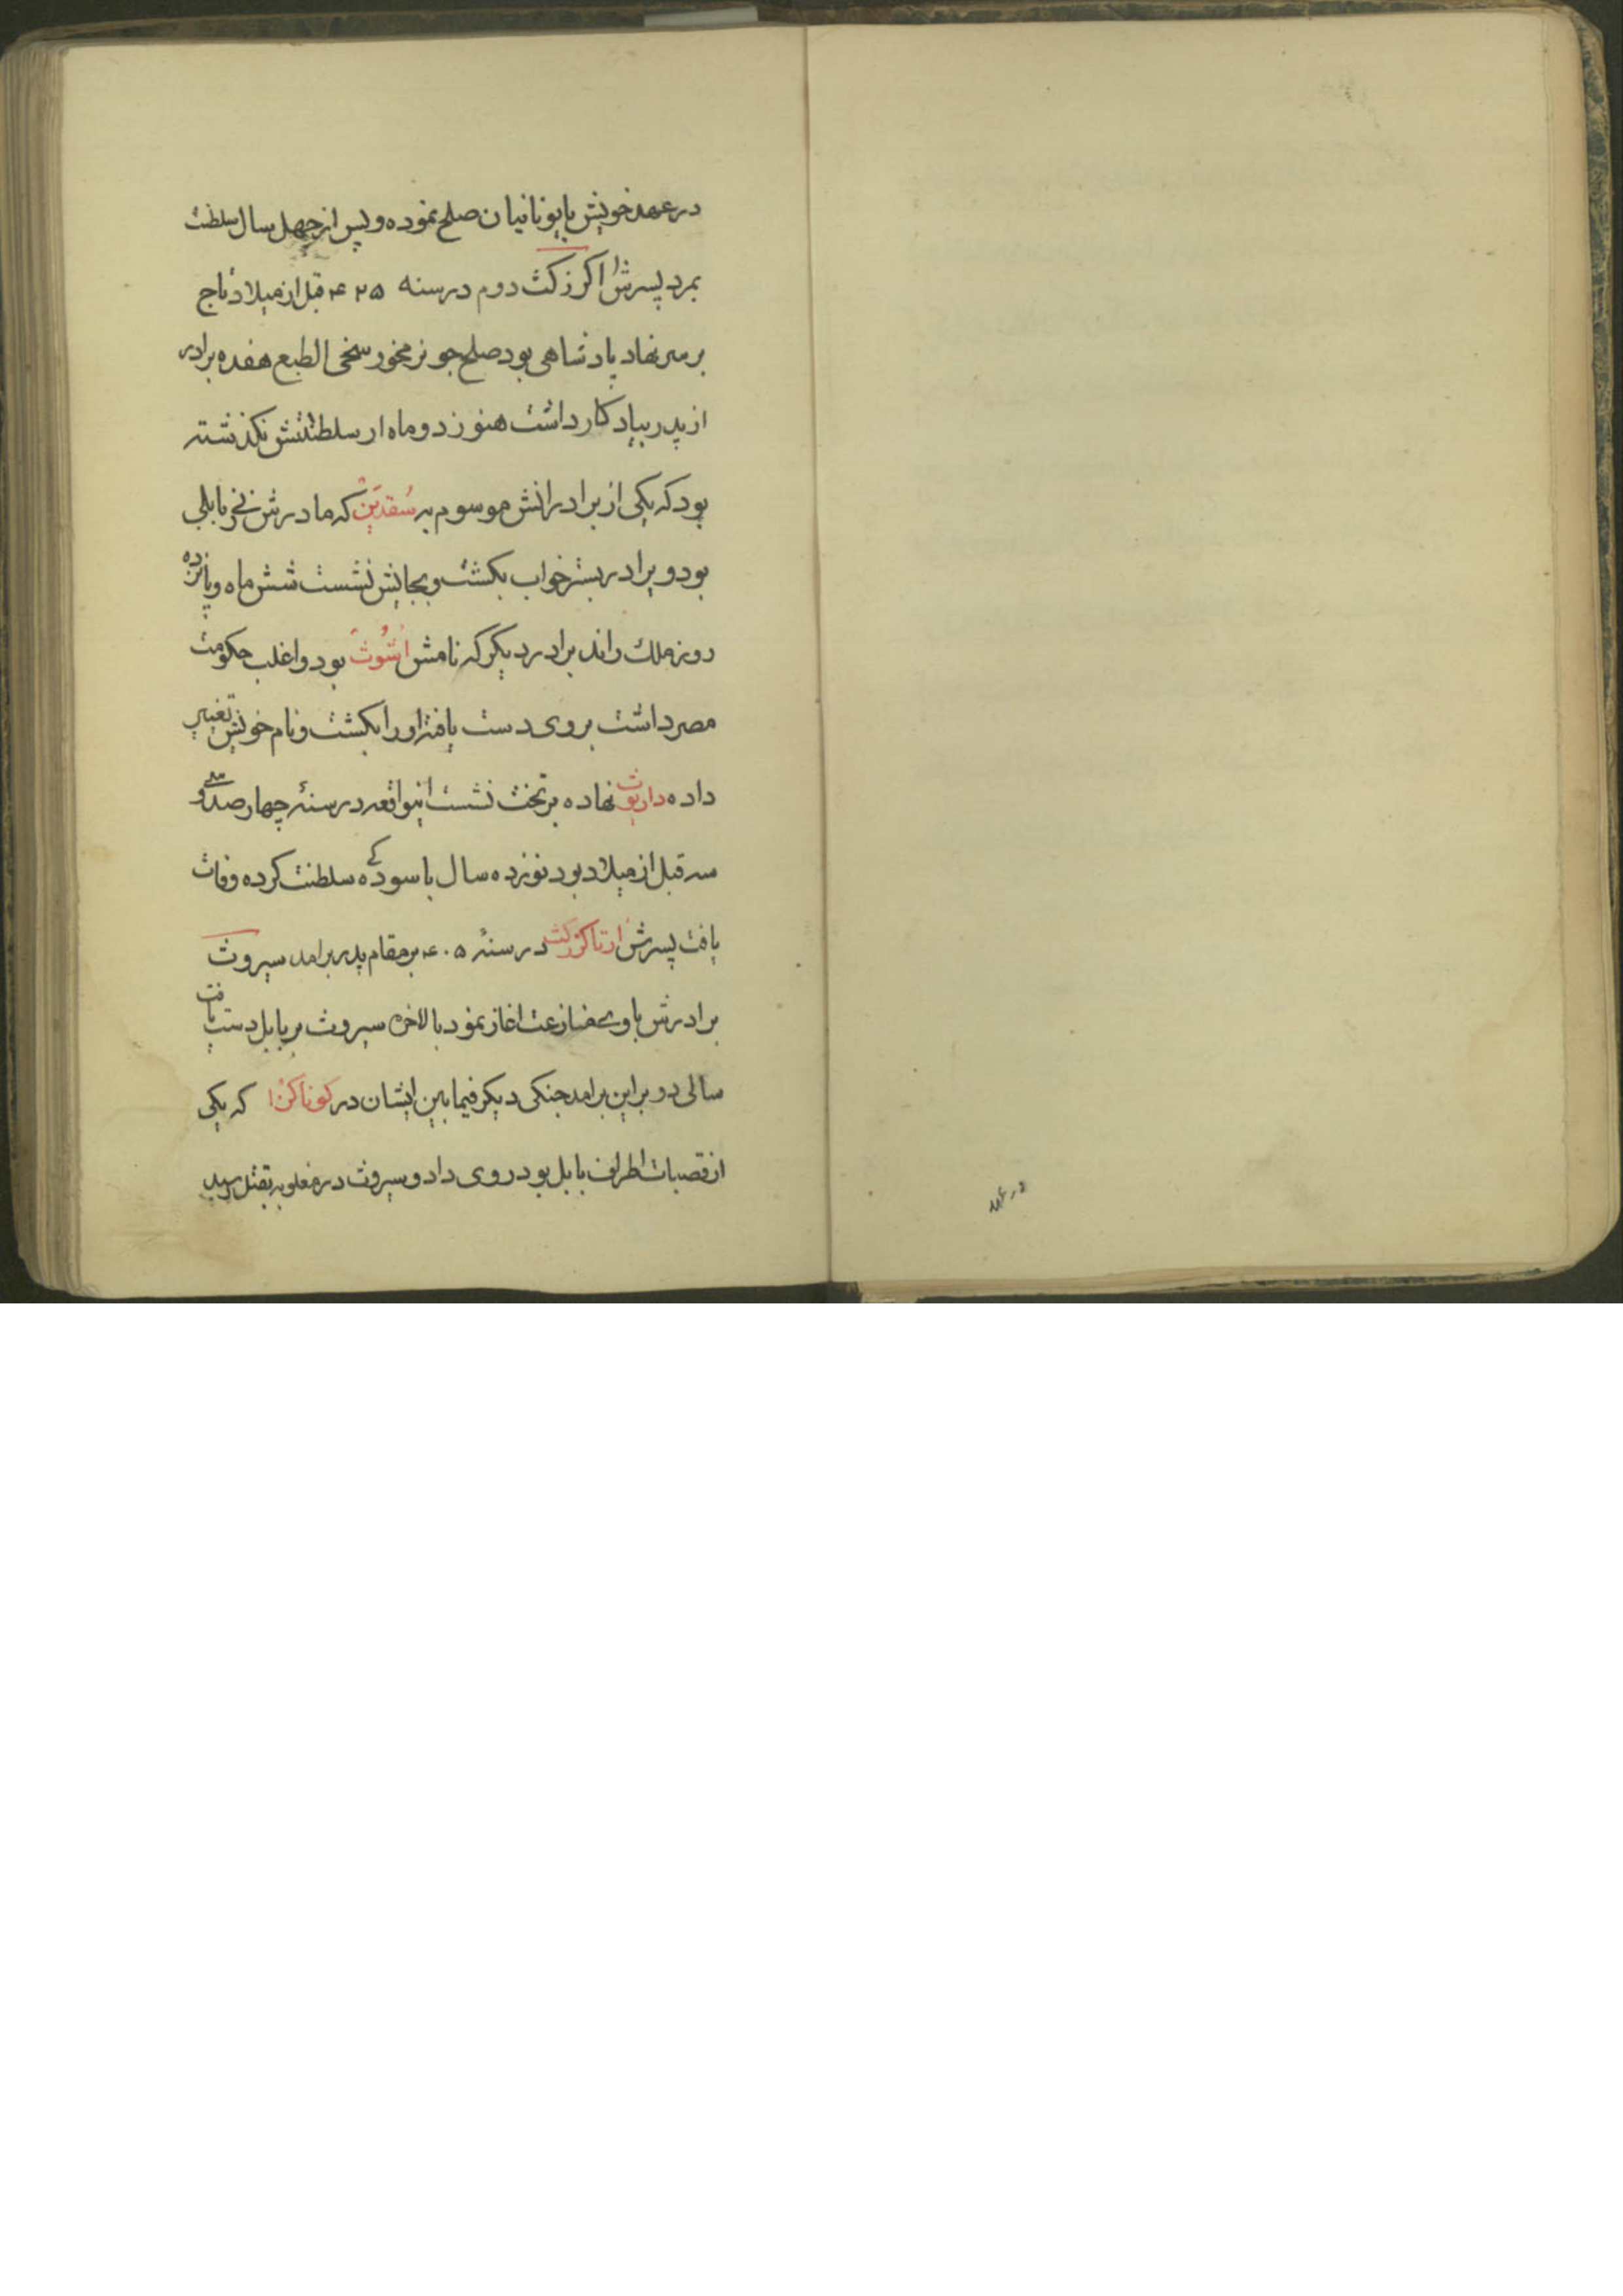 در عهد خویش با یونانیان صلح نموده و پس از چهل سال سلطنت
بمرد پسرش اکزرکث دوم در سنه ۴۲۵ قبل از میلاد تاج
بر سر نهاد پادشاهی بود صلح جو نرمخو و سخی الطبع هفده برادر
از پدر بیادکار داشت هنوز دو ماه از سلطنتش نکذشته
بود که یکی از برادرانش موسوم به سُقدیَن که مادرش زنی بابلی
بود ویرا در بستر خواب بکشت و بجایش نشست شش ماه و پانزده
روز ملک راند برادر دیکر که نامش اُشُوث بود و اغلب حکومت
مصر داشت بر وی دست یافته او را بکشت و نام خویش تغییر
داده داریوث نهاده بر تخت نشست اینواقعه در سنهٔ چهار صد و
سه قبل از میلاد بود نوزده سال باسوده کی سلطنت کرده وفات
یافت پسرش ارتاکزرکث در سنهٔ ۴۰۵ بر مقام پدر برامد سیروث
برادرش با وی منازعت اغاز نمود بالاخره سیروث بر بابل دست یافت
سالی دو براین برامد جنکی دیکر فیما بین ایشان در کوناکزا که یکی
از قصبات اطراف بابل بود روی داد و سیروث در معلوبه بقتل رسید